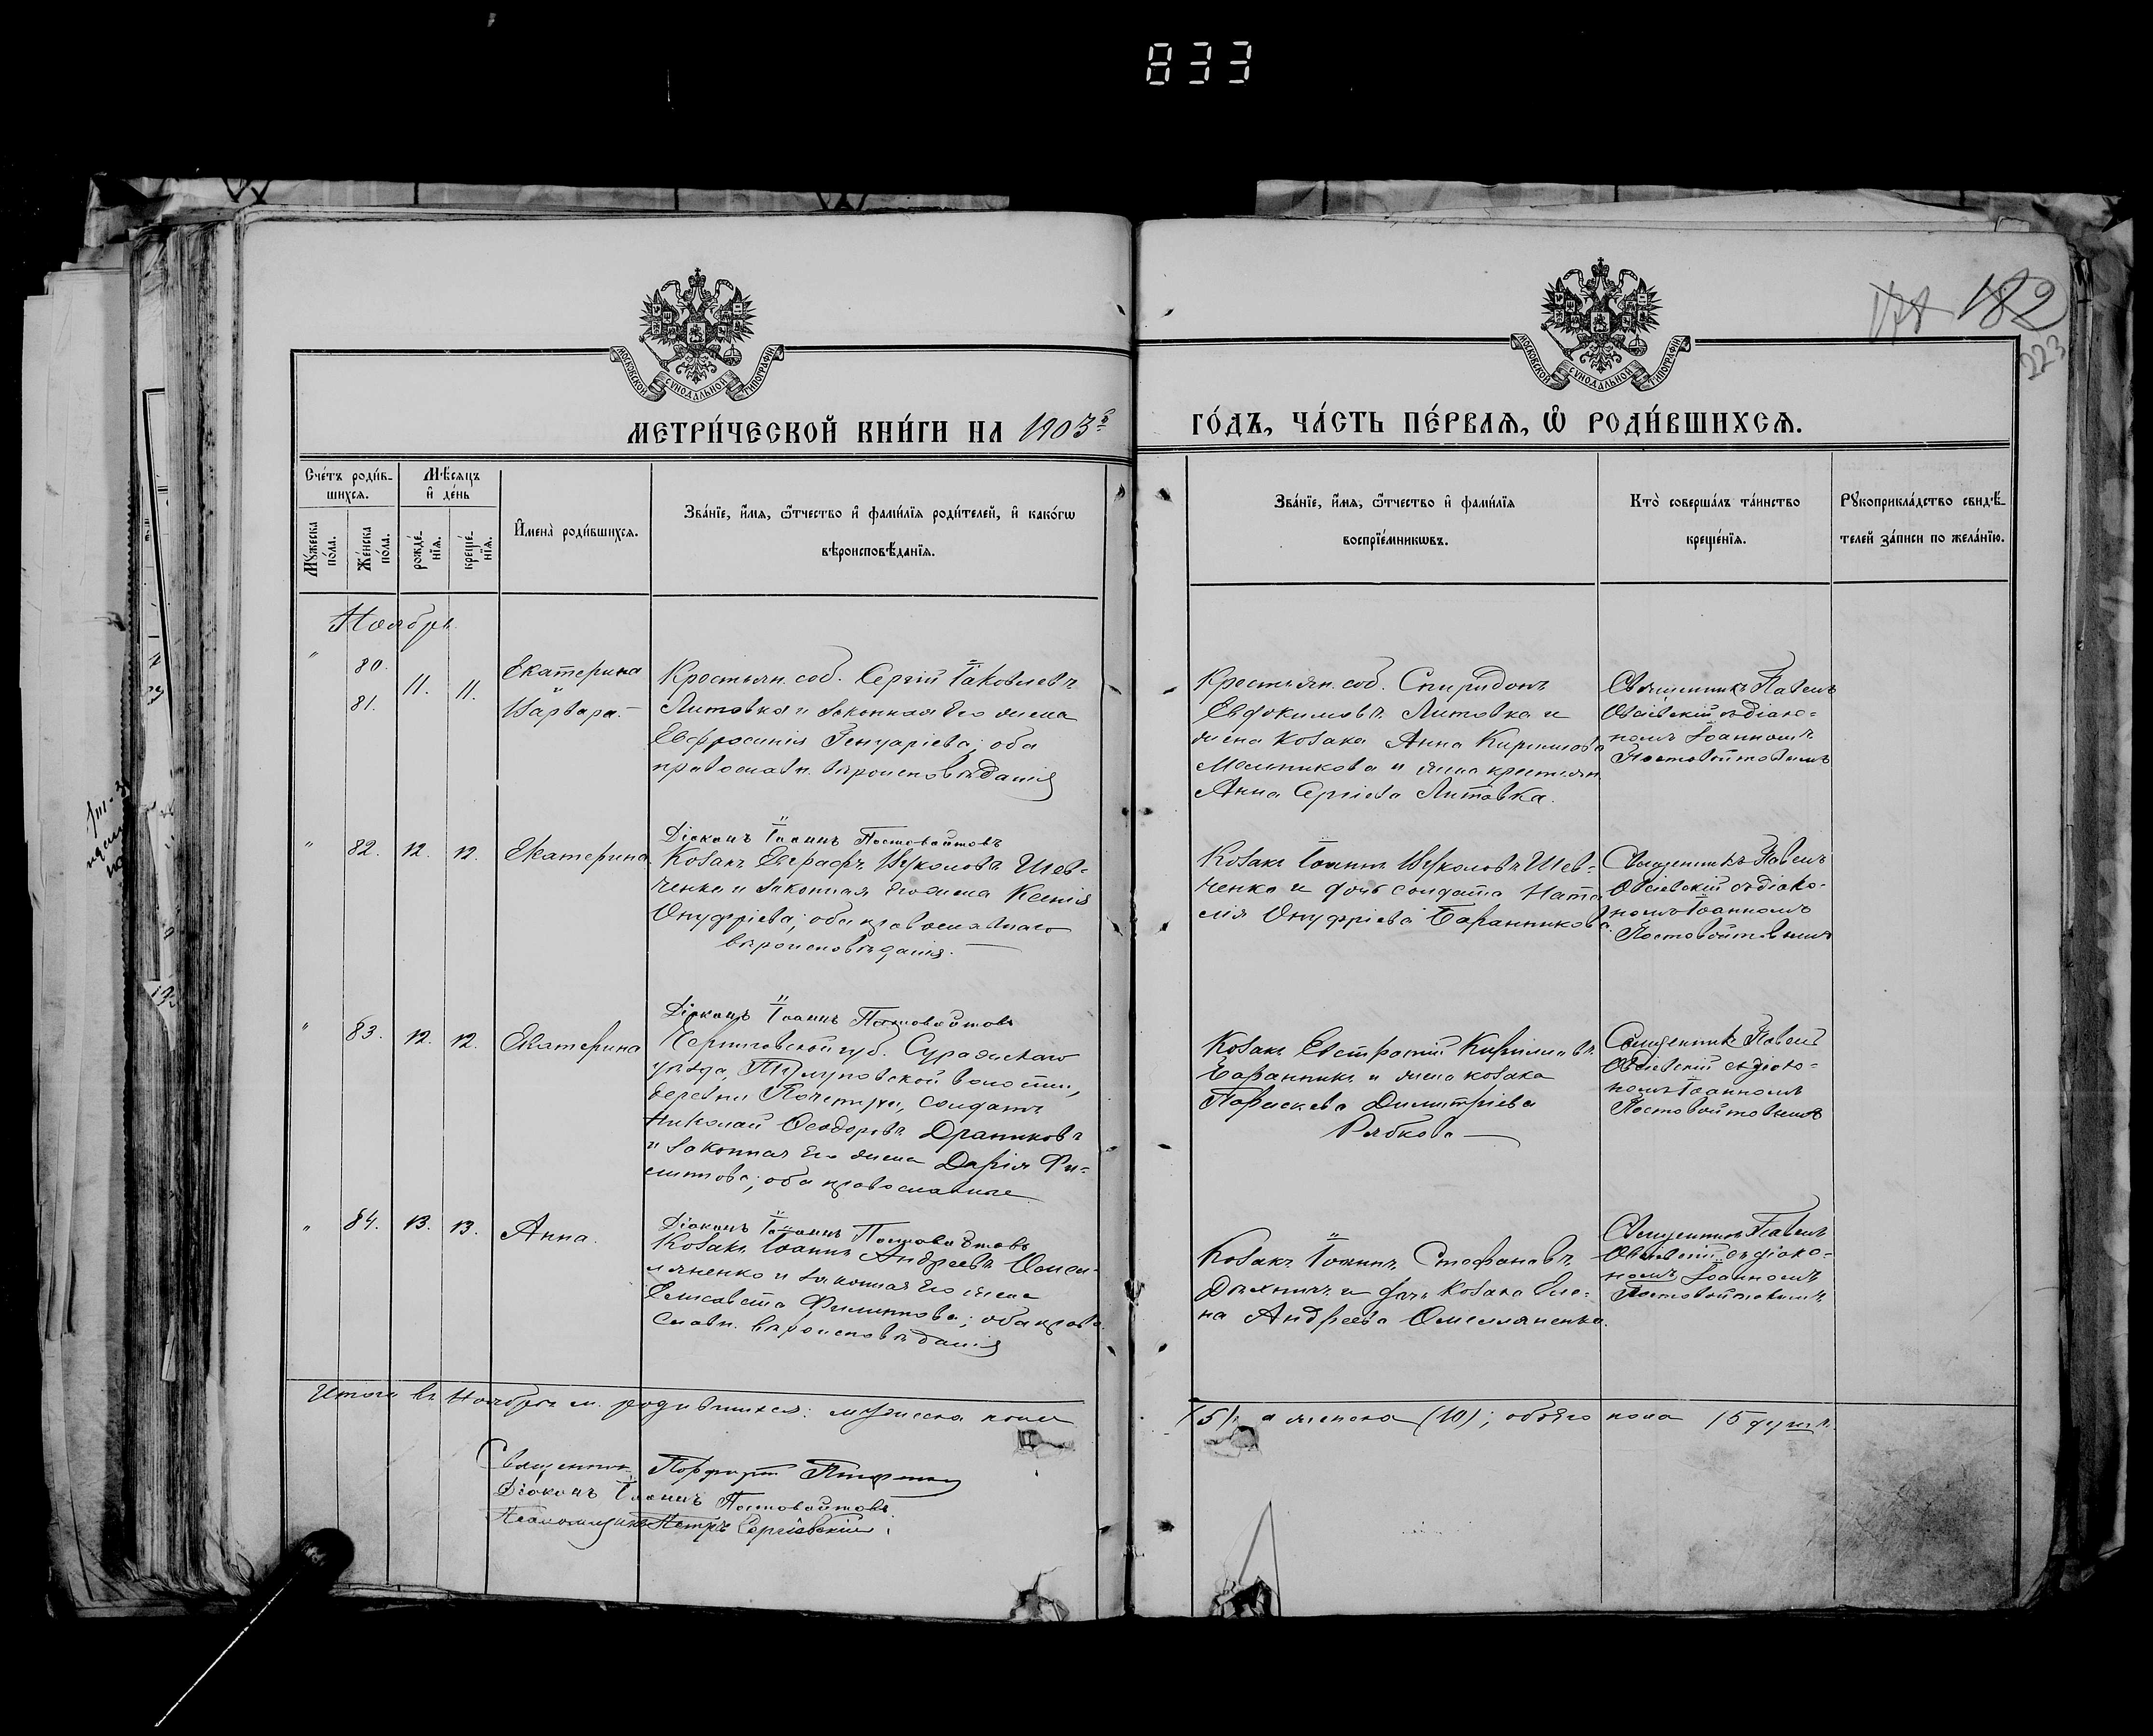 833
182
223
МОСКОВСКОЙ СУНОДАЛЬНОЙ ТИПОГРАФІИ
МОСКОВСКОЙ СУНОДАЛЬНОЙ ТИПОГРАФІИ
МЕТРИ́ЧЕСКОЙ КНИ́ГИ НА 1903 ГО́ДЪ, ЧА́СТЬ ПЕ́РВАѦ, Ѿ РОДИ́ВШИХСѦ.
Сче́тъ роди́в-
шихсѧ.
Мѣ́сѧцъ
и҆ де́нь
Мꙋ́жеска
по́ла.
Же́нска
по́ла.
рожде́-
нїѧ.
креще́-
нїѧ.
И҆мена̀ роди́вшихсѧ.
Зва́нїе, и҆́мѧ, ѻ҆́тчество и҆ фами́лїѧ роди́телей, и҆ како́гѡ
вѣроисповѣ́данїѧ.
Зва́нїе, и҆́мѧ, ѻ҆́тчество и҆ фами́лїѧ
воспрїе́мникѡвъ.
Кто̀ соверша́лъ та́инство
креще́нїѧ.
Рꙋкоприкла́дство свидѣ́-
телей за́писи по жела́нїю.
Ноябрь
" 80. 11. 11. Екатерина
81. Варвара.
Крестьян. соб. Сергій Іаковлевъ
Литовка и законная его жена
Евфросинія Іенуаріева; оба
православн. вѣроисповѣданія
Крестьян. соб. Спиридонъ
Евдокимовъ Литовка и
жена козака Анна Кириллова
Мельникова и жена крестьян.
Анна Сергіева Литовка.
Священникъ Павелъ
съ діако-
номъ Іоанномъ
Постовойтовымъ
Діаконъ Іоаннъ Постовойтовъ
" 82. 12. 12. Екатерина
Козакъ Евграфъ Шев-
ченко и законная его жена Ксенія
Онуфріева; оба православнаго
вѣроисповѣданія.
Козакъ Іоаннъ Шев-
ченко и дочь солдата Ната
лія Онуфріева Баранникова.
Священникъ Павелъ
съ діако-
номъ Іоанномъ
Постовойтовымъ
Діаконъ Іоаннъ Постовойтовъ
" 83. 12. 12. Екатерина
Черниговской губ. Суражскаго
уѣзда, волости,
деревни солдатъ
Николай Ѳеодоровъ Драниковъ
и законная его жена Дарія Фи-
липпова; оба православные
Козакъ Евстратій Кирилловъ
Баранникъ и жена козака
Параскева Димитріева
Рябкова
Священникъ Павелъ
съ діако-
номъ Іоанномъ
Постовойтовымъ
Діаконъ Іоаннъ Постовойтовъ
" 84. 13. 13. Анна.
Козакъ Іоаннъ Андреевъ Омел-
ляненко и законная его жена
Елисавета Филиппова; оба право
славн. вѣроисповѣданія
Козакъ Іоаннъ Стефановъ
и дочь козака Еле-
на Андреева Омелляненко.
Священникъ Павелъ
съ діако-
номъ Іоанномъ
Постовойтовымъ
Итого въ Ноябрѣ м. родившихся: мужеска пола (5), а женска (10); обоего пола 15 душъ.
Священникъ Порфирій
Діаконъ Іоаннъ Постовойтовъ.
Псаломщикъ Петръ Сергіевскій.